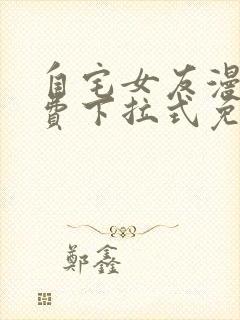 自宅女友漫
費下拉式免
鄭鑫